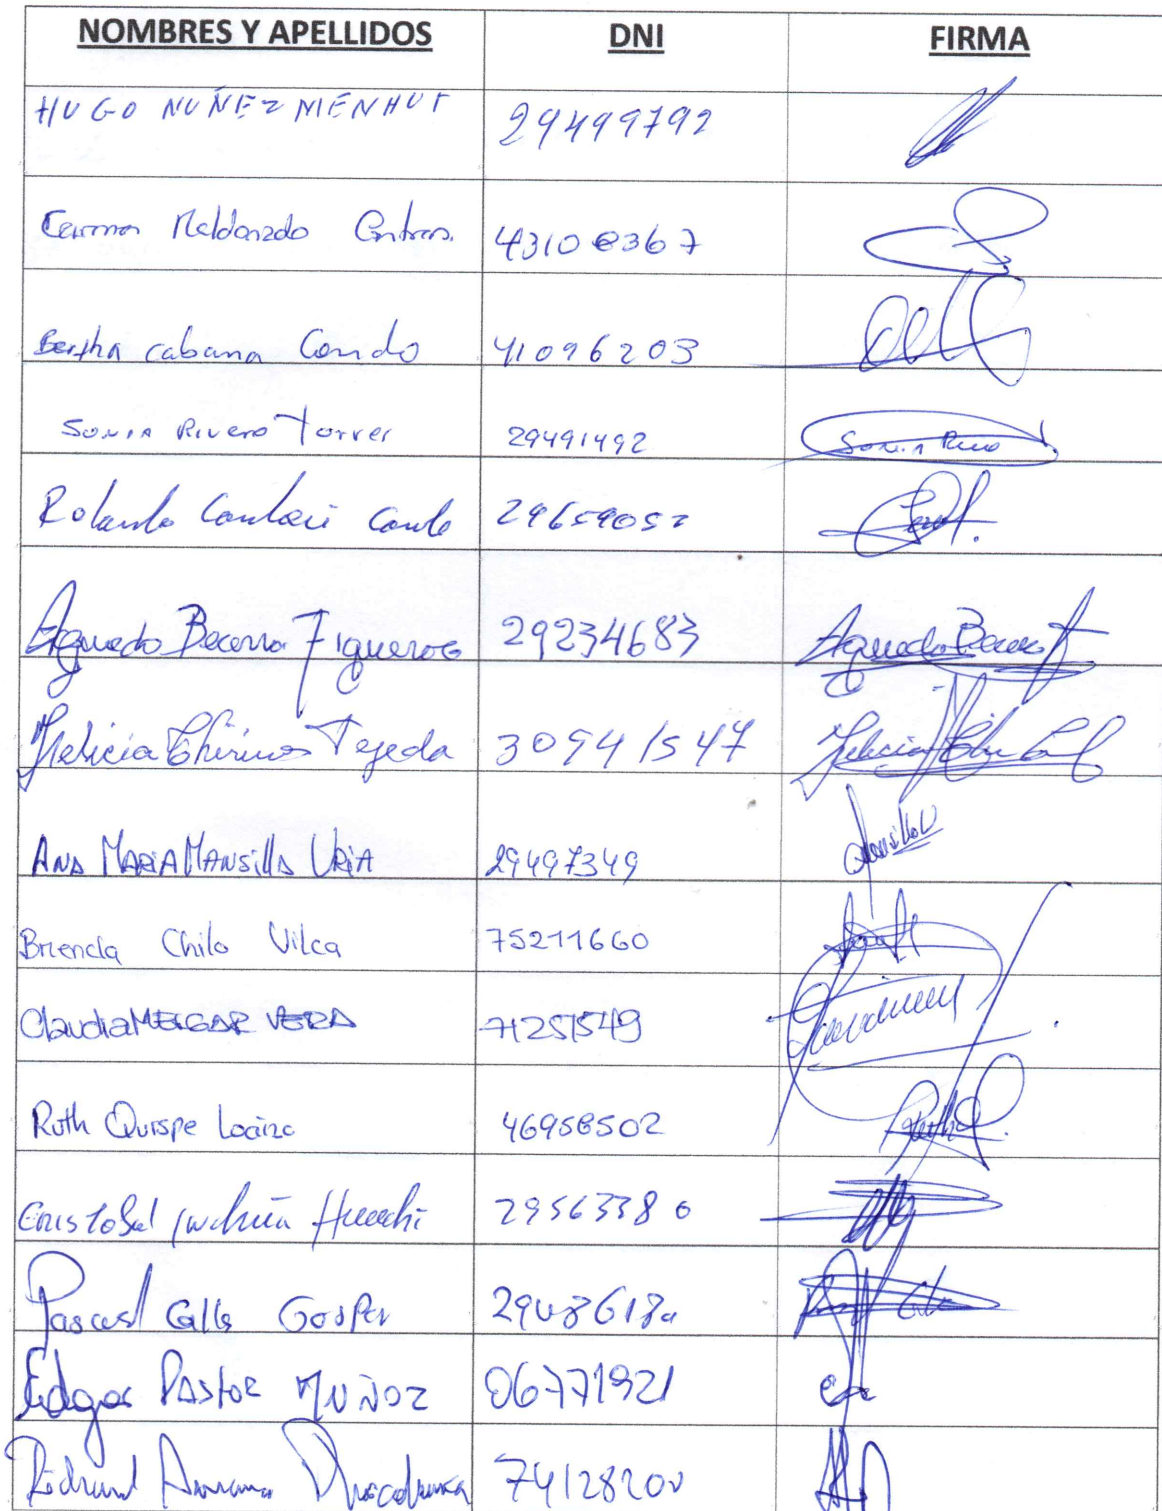 NOMBRES Y APELLIDOS DNI FIRMA
HUGO NUÑEZ MENHUT 29499792
Carmen Maldonado 43100367
Bertha cabana Condo 41096203
SONIA Rivero Torres 29491492 SONIA
Rolando Condori Conde 29659052
Agueda Becerra Figueroa 29234683 Agueda
Felicia Chirinos Tejeda 30941547 Felicia
ANA MARIA MANSILLA URIA 29497349 Mansilla
Brenda Chilo Vilca 75211660
Claudia MELGAR VERA 71251549
Ruth Quispe Loaiza 46958502
Cristobal 29563380
Pascual Calla 
Edgar PASTOR MUÑOZ 06771921